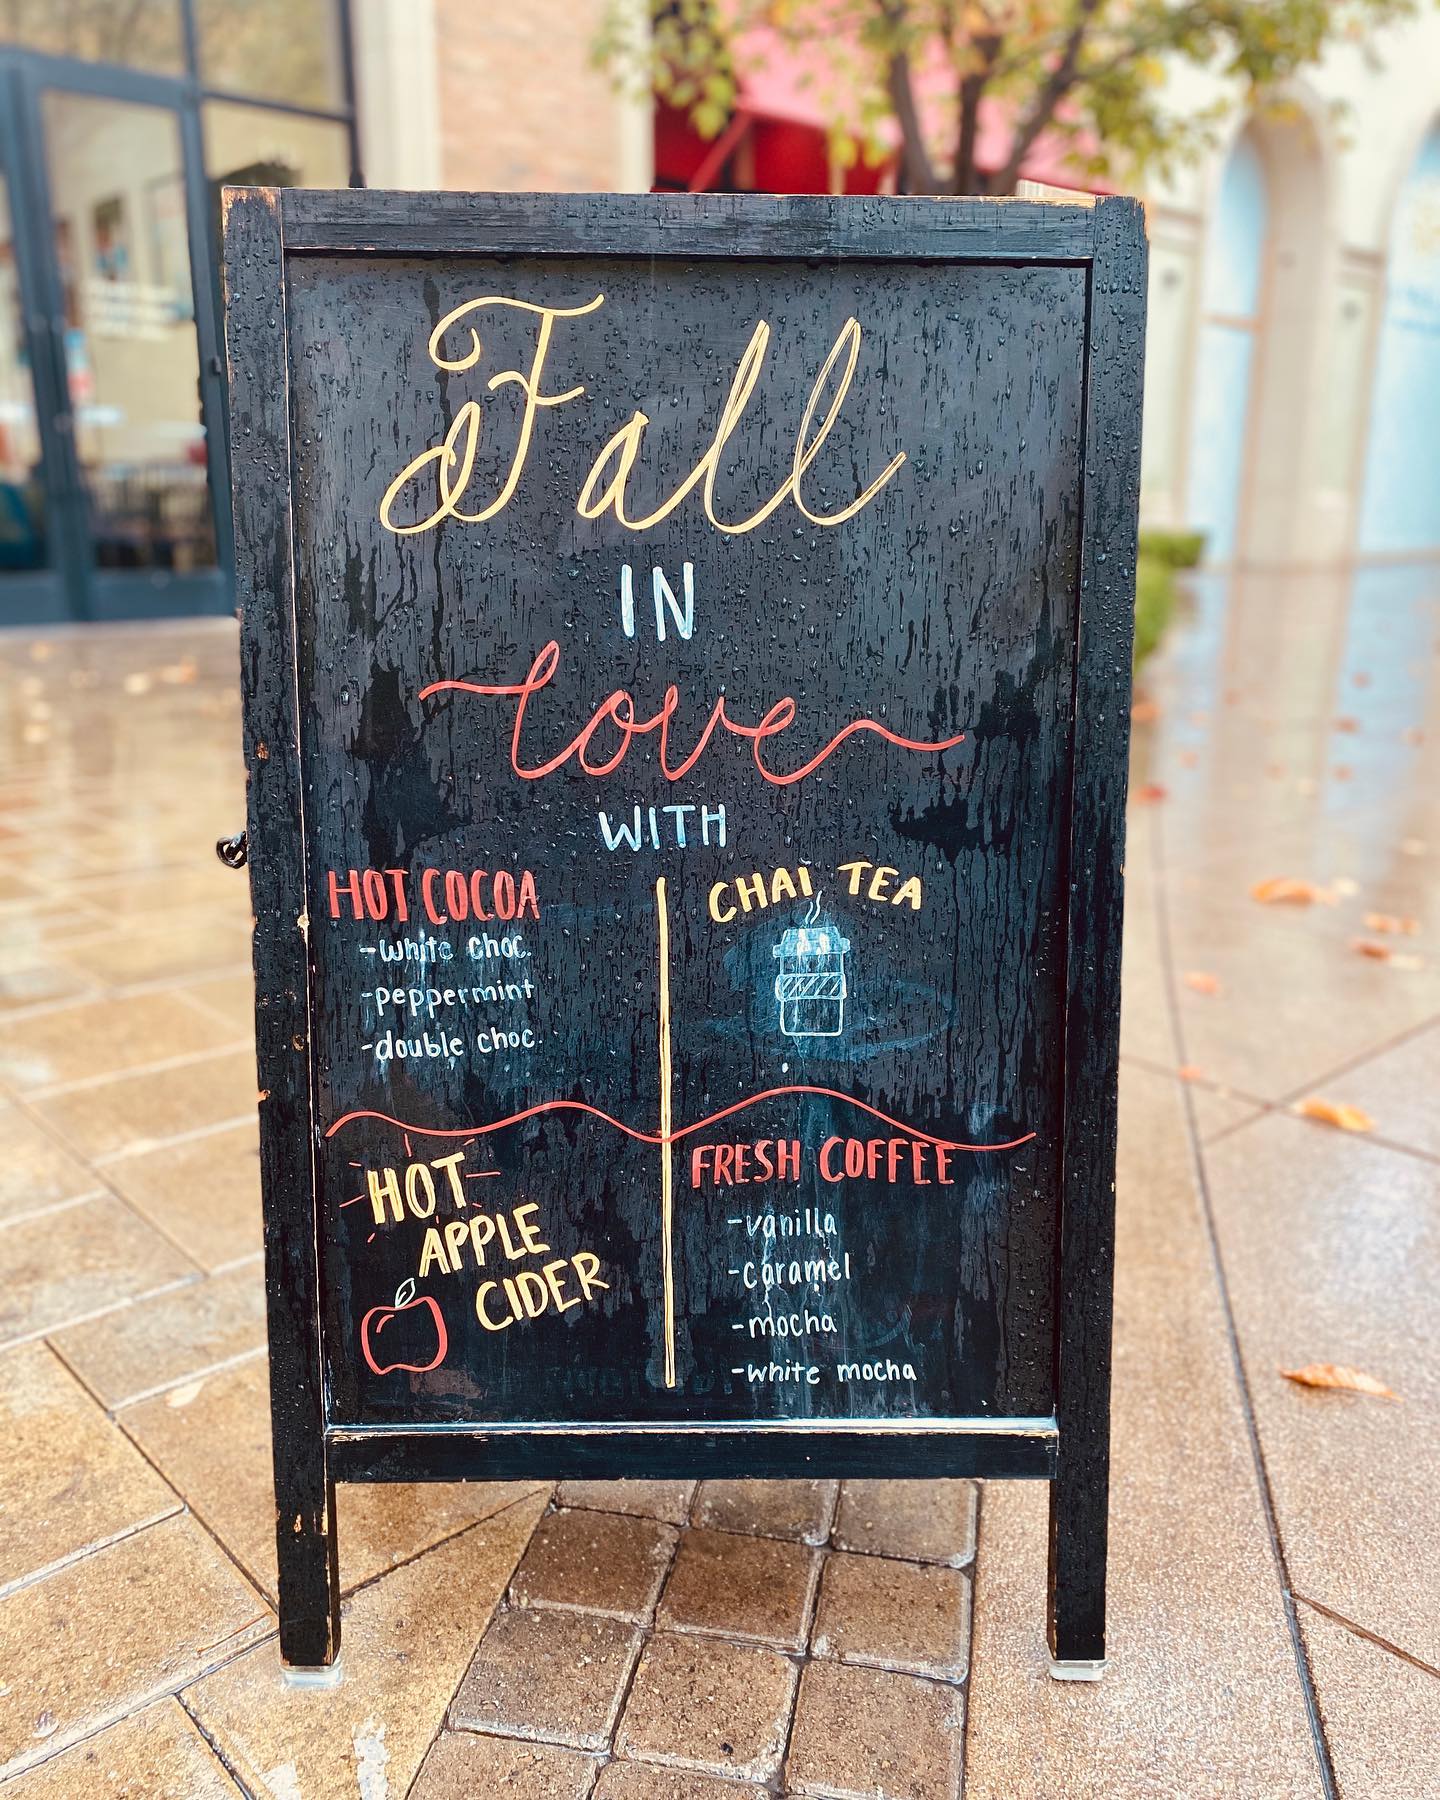 Fall
IN
love
WITH
HOT COCOA
-white choc.
-peppermint
-double choc.
CHAI TEA
HOT
APPLE
CIDER
FRESH COFFEE
-vanilla
-caramel
-mocha
-white mocha